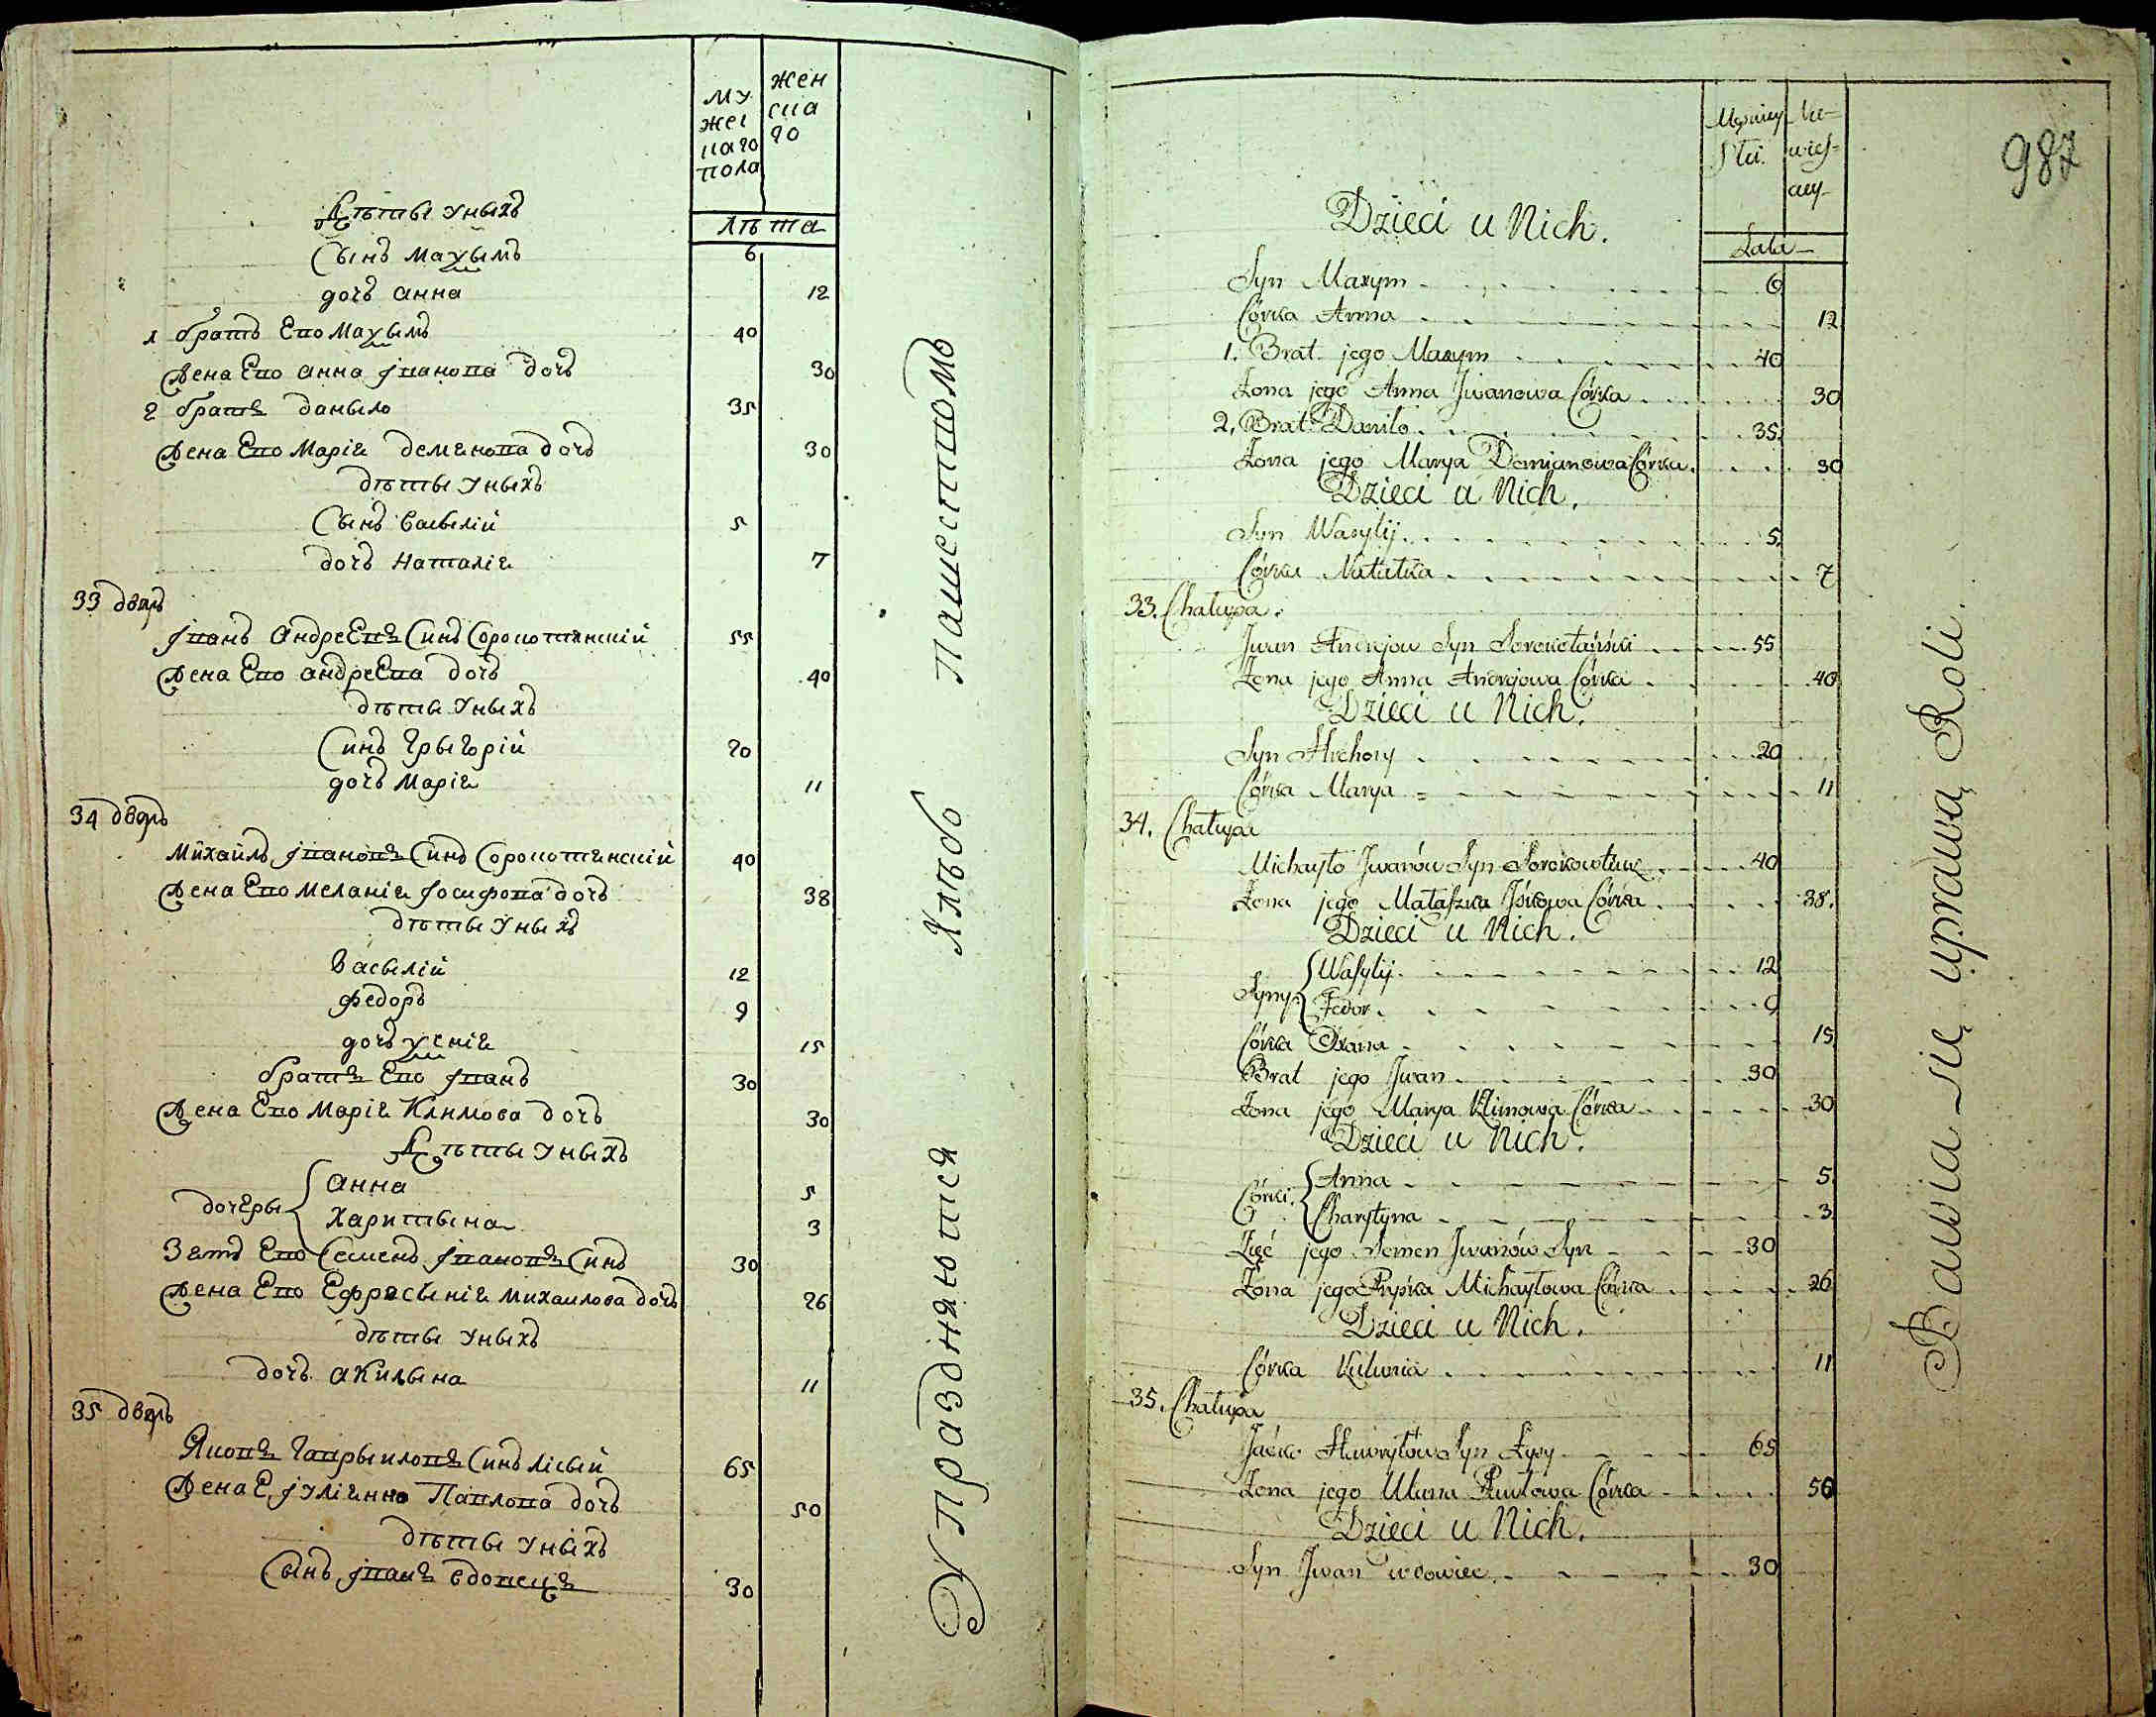 му жен
жес ска
каго го
пола
лѣта
Дѣты Уныхъ
Сынъ Маѯымъ 6
дочъ анна 12
1 братъ Его Маѯымъ 40
Жена Его анна Іванова дочъ 30
2 братъ даныло 35
Жена Его Маріѧ демѧнова дочъ 30
дѣты Уныхъ
Сынъ Васылій 5
дочъ Наталіѧ 7
33 дворъ
Іванъ АндреЕвъ Синъ Сорокотѧнскій 55
Жена Его андреЕва дочъ 40
дѣты Уныхъ
Синъ Грыгорій 20
дочъ Маріѧ 11
34 дворъ
Михайлъ Івановъ Синъ Сорокотѧнскій 40
Жена Его Меланіѧ Іосифова дочъ 38
дѣты Уныхъ
Васылій 12
Федоръ 9
дочъ Уѯеніѧ 15
братъ Его Іванъ 30
Жена Его Маріѧ Климова дочъ 30
Дѣты Уныхъ
дочѣры { анна 5
Харитына 3
Зѧтъ Его Семенъ Івановъ Синъ 30
Жена Его Ефросыніѧ Михаилова дочъ 26
дѣты Уныхъ
дочъ акилына 11
35 дворъ
Яковъ Гаврыиловъ Синъ лисый 65
Жена Е Іуліѧнна Павлова дочъ 50
дѣты Уныхъ
Сынъ Іванъ вдовецъ 30
Упражняются Хлѣбо Пашеством
987
Męzkiey Nie-
Płci. wieś-
ciey
Lata
Dzieci u Nich.
Syn Maxym 6
Córka Anna 12
1. Brat jego Maxym 40
Żona jego Anna Jwanowa Córka 30
2. Brat Daniło 35
Żona jego Marya Demianowa Córka 30
Dzieci u Nich.
Syn Wasylij 5
Córka Natałka 7
33. Chałupa.
Jwan Andrejow Syn Sorokotański 55
Żona jego Anna Andrejowa Córka 40
Dzieci u Nich.
Syn Hrehory 20
Córka Marya 11
34. Chałupa
Michayło Jwanów Syn 40
Żona jego Małaszka Córka 38.
Dzieci u Nich.
Syny { Wasylij 12
Fedor 9
Córka Oxana 15
Brat jego Jwan 30
Żona jego Marya Klimowa Córka 30
Dzieci u Nich.
Córki { Anna 5
Charytyna 3
Zięć jego Semen Jwanów Syn 30
Żona jego Pryśka Michayłowa Córka 26
Dzieci u Nich.
Córka Kulwnia 11
35. Chałupa
Jaćko Hawryłów Syn Łysy 65
Żona jego Ulana Pawłowa Córka 50
Dzieci u Nich.
Syn Jwan wdowiec 30
Bawia się uprawą Roli.